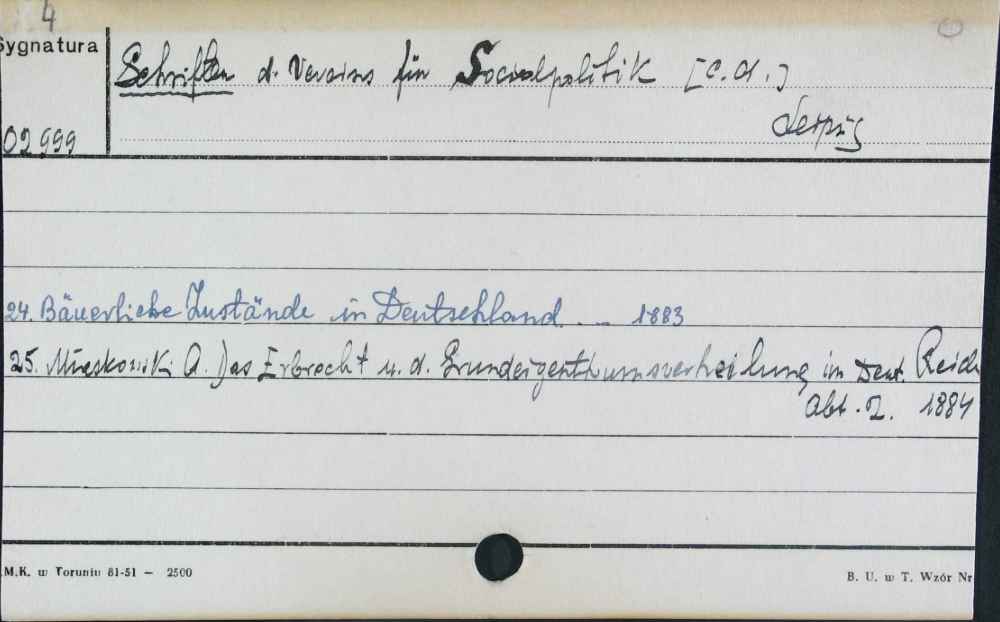 4
Sygnatura
Schriften d. Vereins für Socialpolitik [c.d.]
Leipzig
02999
24. Bäuerliche Zustände in Deutschland. – 1883
25. Miaskowski A. Das Erbrecht u. d. Grundeigenthumsverteilung im Deut. Reich
Abt. 2. 1884
M.K. w Toruniu 81-51 — 2500
B. U. w T. Wzór Nr